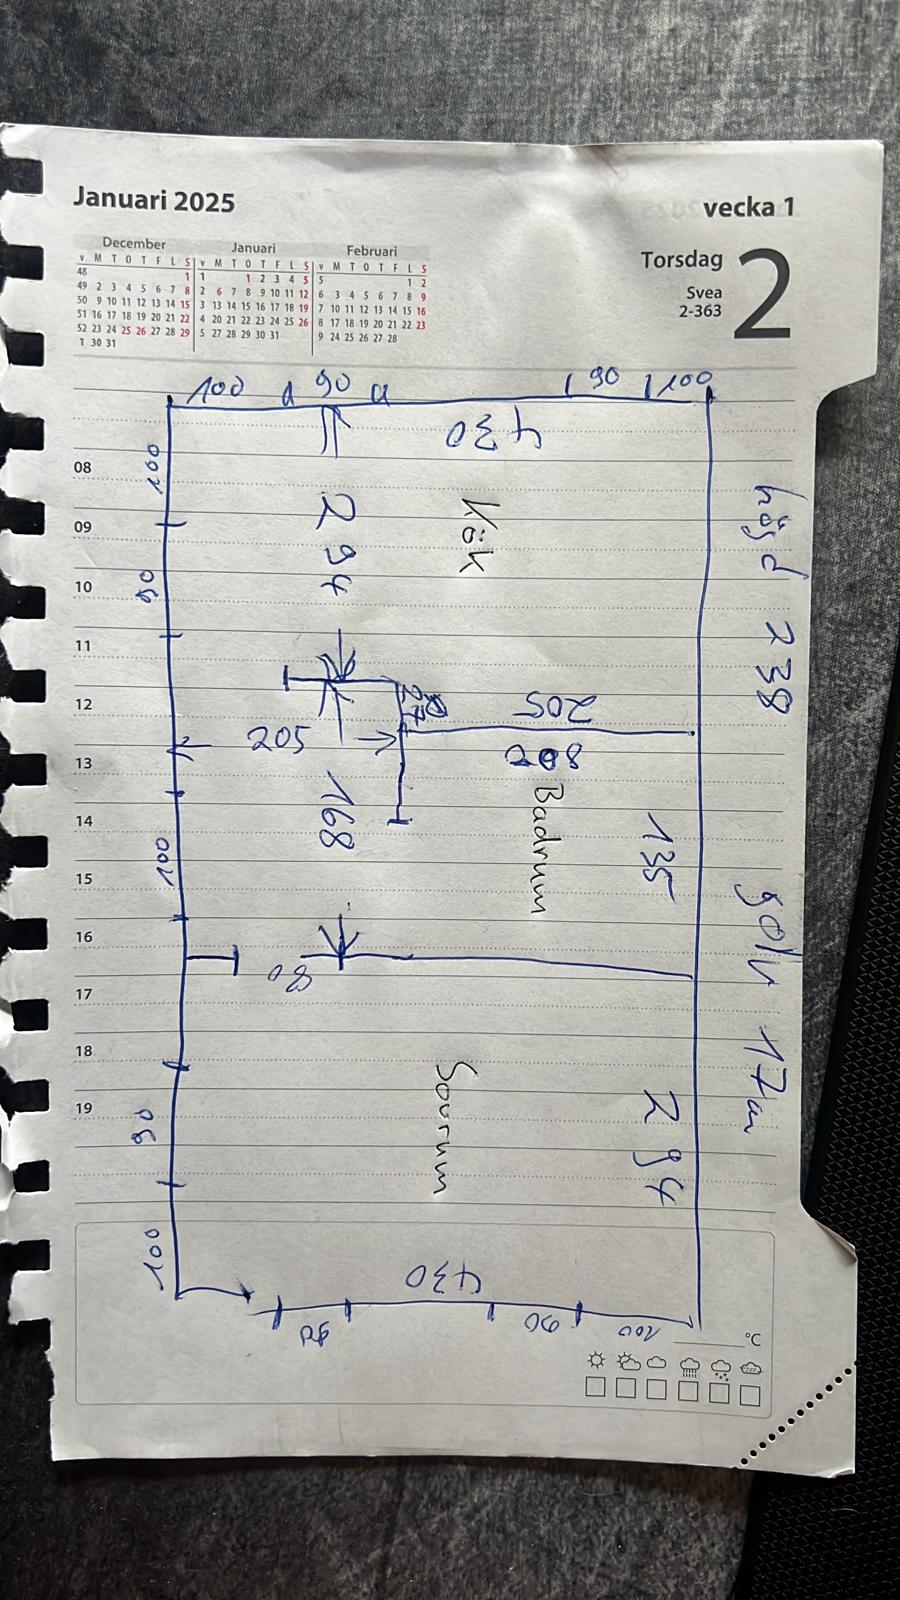 Januari 2025
vecka 1
Torsdag
2
Svea
2-363
December
v M T O T F L S
48 1
49 2 3 4 5 6 7 8
50 9 10 11 12 13 14 15
51 16 17 18 19 20 21 22
52 23 24 25 26 27 28 29
1 30 31
Januari
v M T O T F L S
1 1 2 3 4 5
2 6 7 8 9 10 11 12
3 13 14 15 16 17 18 19
4 20 21 22 23 24 25 26
5 27 28 29 30 31
Februari
v M T O T F L S
5 1 2
6 3 4 5 6 7 8 9
7 10 11 12 13 14 15 16
8 17 18 19 20 21 22 23
9 24 25 26 27 28
100 90 90 100
430
100
08
höjd 238
294
Kök
09
90
10
11
12
205
205
208
13
168
Badrum
135
14
100
15
golv 17
16
80
17
18
Sovrum
294
19
90
100
430
90 90 100
°C